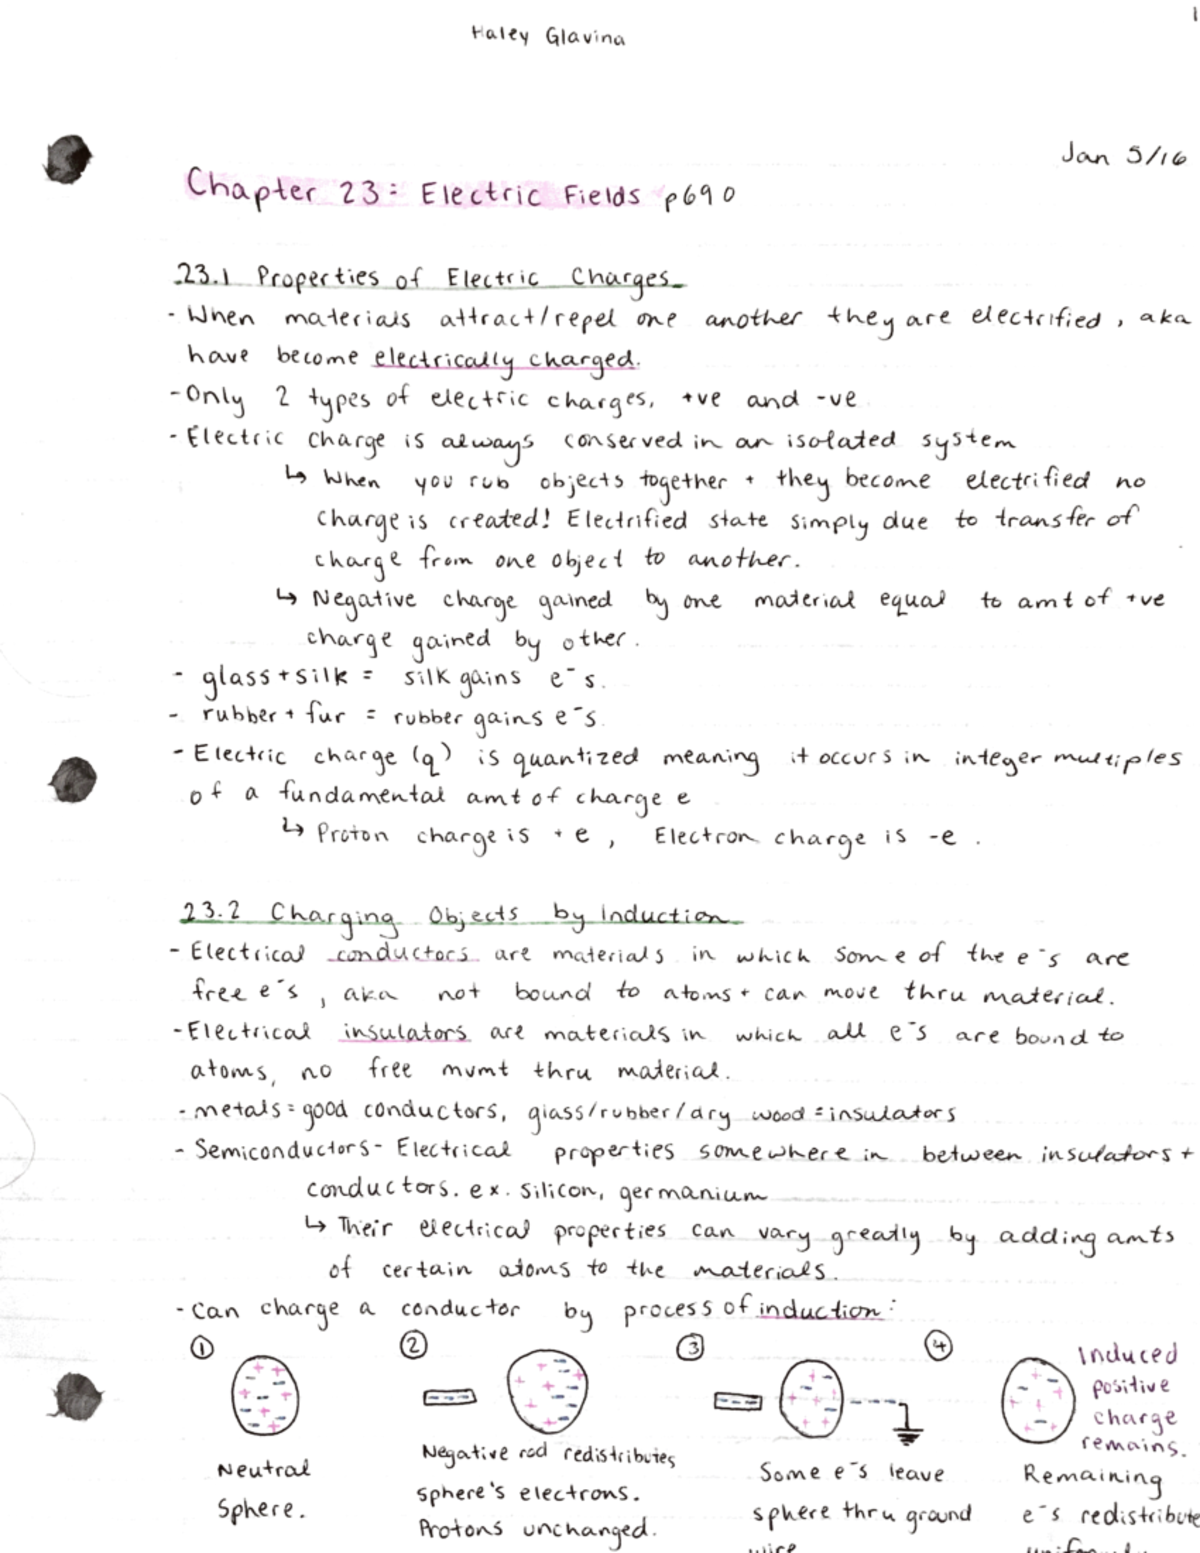 1
Haley Glavina
Jan 5/16
Chapter 23: Electric Fields p690
23.1 Properties of Electric Charges
- When materials attract/repel one another they are electrified, aka
have become electrically charged.
- Only 2 types of electric charges, +ve and -ve
- Electric charge is always conserved in an isolated system
↳ When you rub objects together + they become electrified no
charge is created! Electrified state simply due to transfer of
charge from one object to another.
↳ Negative charge gained by one material equal to amt of +ve
charge gained by other.
- glass + silk = silk gains e⁻s.
- rubber + fur = rubber gains e⁻s.
- Electric charge (q) is quantized meaning it occurs in integer multiples
of a fundamental amt of charge e
↳ Proton charge is +e, Electron charge is -e.
23.2 Charging Objects by Induction
- Electrical conductors are materials in which some of the e⁻s are
free e⁻s, aka not bound to atoms + can move thru material.
- Electrical insulators are materials in which all e⁻s are bound to
atoms, no free mvmt thru material.
- metals = good conductors, glass/rubber/dry wood = insulators
- Semiconductors - Electrical properties somewhere in between insulators +
conductors. ex. silicon, germanium
↳ Their electrical properties can vary greatly by adding amts
of certain atoms to the materials.
- Can charge a conductor by process of induction:
① ② ③ ④
Induced
positive
charge
remains.
Neutral
Sphere.
Negative rod redistributes
sphere's electrons.
Protons unchanged.
Some e⁻s leave
sphere thru ground
wire
Remaining
e⁻s redistribute
uniformly